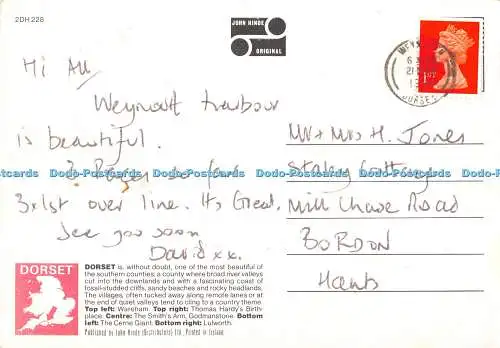 2DH 228
JOHN HINDE
ORIGINAL
1ST
DORSET
Hi All
Weymouth harbour
is beautiful.
3 Races so far
3x1st over line. It's Great.
See you soon
David xx.
Mr + Mrs H. Jones
Staley Cottage
Mill Chase Road
BORDON
Hants
Dodo-Postcards Dodo-Postcards Dodo-Postcards Dodo-Postcards Dodo-Postcards
DORSET
DORSET is, without doubt, one of the most beautiful of
the southern counties; a county where broad river valleys
cut into the downlands and with a fascinating coast of
fossil-studded cliffs, sandy beaches and rocky headlands.
The villages, often tucked away along remote lanes or at
the end of quiet valleys tend to cling to a country theme.
Top left: Wareham. Top right: Thomas Hardy's Birth-
place. Centre: The Smith's Arm, Godmanstone. Bottom
left: The Cerne Giant. Bottom right: Lulworth.
Published by John Hinde (Distributors) Ltd. Printed in Ireland